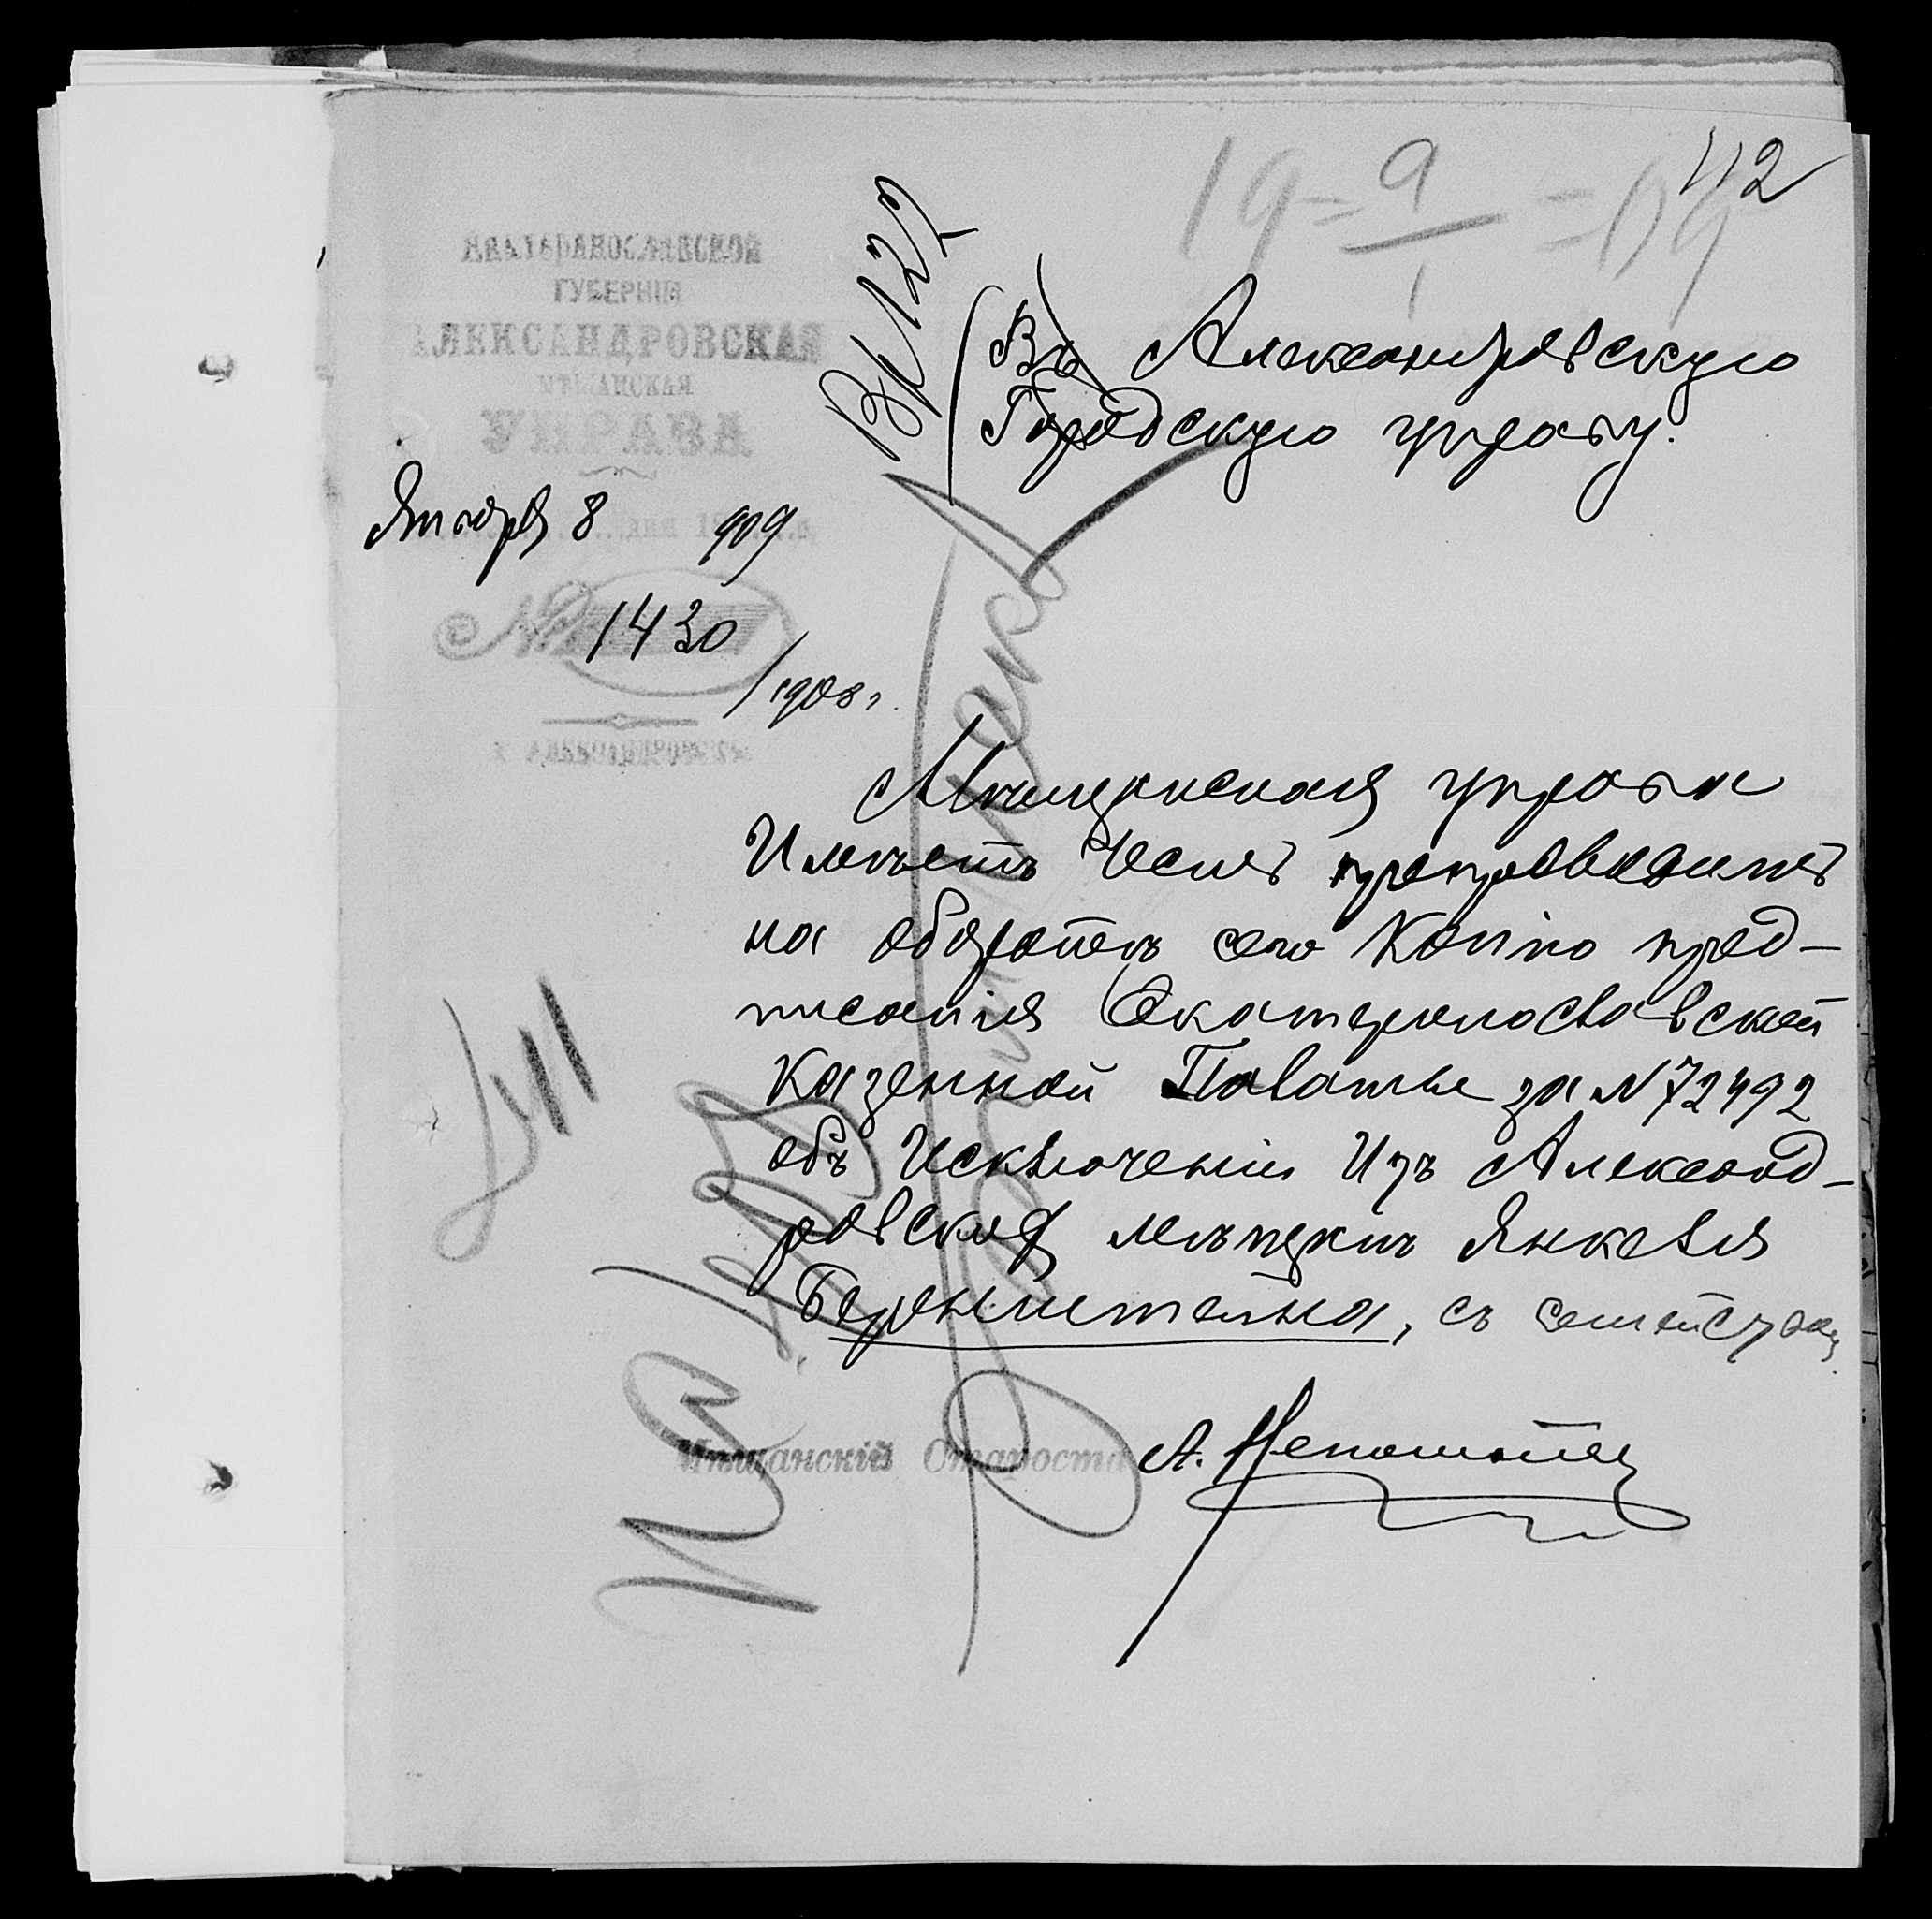 112
19 = 9/1 = 09
Вх 122
ЕКАТЕРИНОСЛАВСКОЙ
ГУБЕРНІИ
АЛЕКСАНДРОВСКАЯ
МѢЩАНСКАЯ
УПРАВА
Января 8 дня 1909 г.
№ 1430
/1908 г.
г. АЛЕКСАНДРОВСКЪ
Въ Александровскую
Городскую управу.
Мѣщанская управа
Имѣетъ честь препроводить
на оборотѣ сего Копію пред-
писанія Екатеринославской
Казенной Палаты за N 72492
объ Исключеніи Изъ Александ-
ровскихъ мѣщанъ Янкеля
Беренштейна, съ семействомъ
Мѣщанскій Староста А.